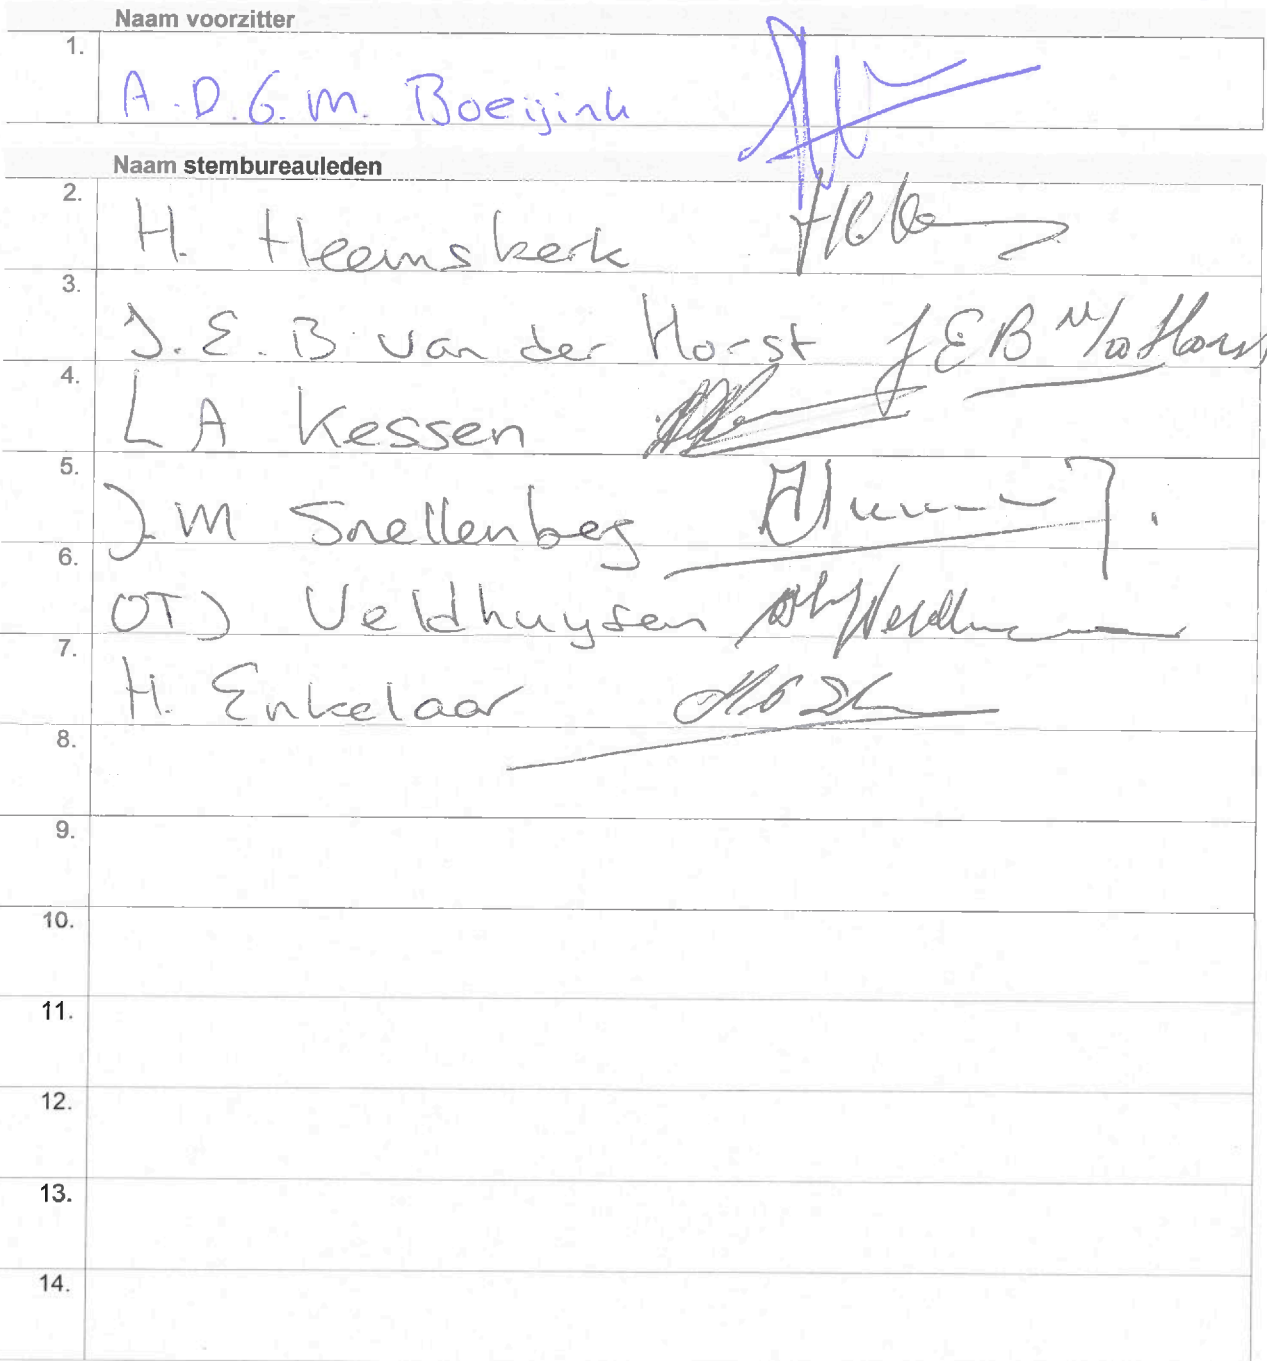 Naam voorzitter
1. A.D.G.M. Boeijink
Naam stembureauleden
2. H. Heemskerk
3. J.E.B van der Horst JEB v/d Horst
4. L A Kessen
5. J.M Snellenberg
6. OTJ Veldhuysen
7. H. Enkelaar
8.
9.
10.
11.
12.
13.
14.